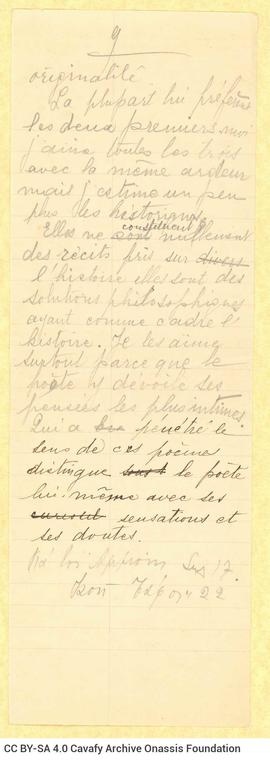 9
originalité
La plupart lui préfère
les deux premiers moi
j'aime toutes les trois
avec la même ardeur
mais j'estime un peu
plus les historiques
Elles ne sont constituent nullement
des récits pris sur divers
l'histoire elles sont des
solutions philosophiques
ayant comme cadre l'
histoire. Je les aime
surtout parce que le
poète y dévoile ses
pensées les plus intimes.
Qui a pénétré le
sens de ces poème
distingue le poète
lui-même avec ses
sensations et
ses doutes.
17
22
CC BY-SA 4.0 Cavafy Archive Onassis Foundation